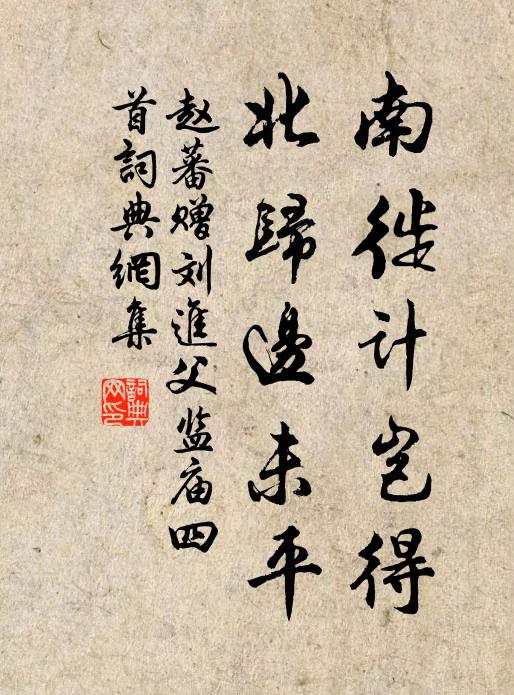 南徙计岂得
北歸邊未平
赵蕃赠刘進父监庙四
首詞典網集
詞典網印